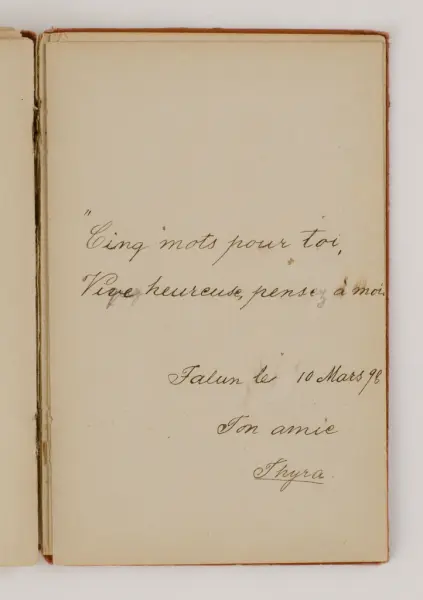 "Cinq mots pour toi,
Vive heureuse, pense à moi.
Falun le 10 Mars 98
Ton amie
Thyra.